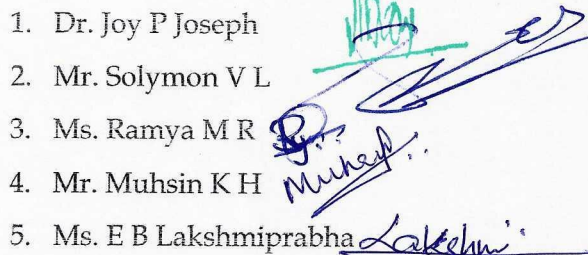 1. Dr. Joy P Joseph
2. Mr. Solymon V L
3. Ms. Ramya M R
4. Mr. Muhsin K H
5. Ms. E B Lakshmiprabha Lakshmi